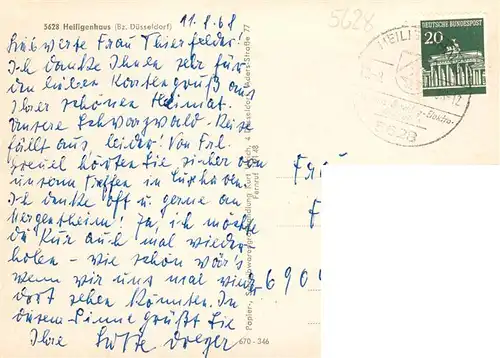 5628 Heiligenhaus (Bz. Düsseldorf)
11.8.68
5628
Liebwerte Frau Thierfelder.
Ich danke Ihnen sehr für
den lieben Kartengruß aus
Ihrer schönen Heimat.
Unsere Schwarzwald-Reise
fällt aus, leider! Von Frl.
hörten Sie sicher von
unserm Treffen in Cuxhaven.
Ich denke oft u. gerne an
Mergentheim! Ja, ich möchte
die Kur auch mal wieder-
holen - wie schön wär's
wenn wir uns mal wieder
dort sehen könnten. In
diesem Sinne grüßt Sie
Ihre Lotte
DEUTSCHE BUNDESPOST
20
HEILIG
5628
Frau
F
6900
670 - 346
Fernruf